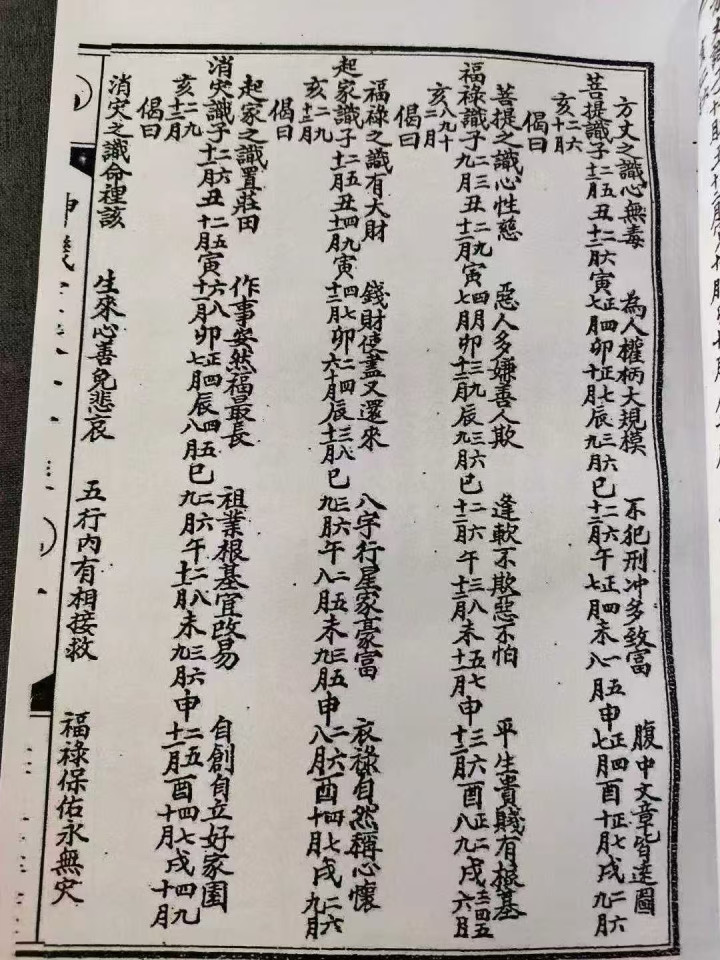 方丈之識心無毒　為人權柄大規模　不犯刑冲多致富　腹中文章皆達圖
菩提識子二五十二月丑二六十二月寅正四七月卯正七十月辰三六九月巳二六十二月午正四七月未一五八月申正四七月酉正七十月戌二六九月
亥二六十月
偈曰
菩提之識心性慈　惡人多嫌善人欺　逢軟不欺惡不怕　平生貴賤有根基
福祿識子二三九月丑二九十二月寅四七月卯三九十二月辰三六九月巳二六十二月午三八十二月未五七十一月申三六十二月酉正二八九月戌三四五六月
亥八九十二月
偈曰
福祿之識有大財　錢財使盡又還來　八字行星家豪富　衣祿自然稱心懷
起家識子二五十一月丑四九十二月寅四七十二月卯二四六十月辰三八十二月巳三六九月午二五八月未三五九月申二六八月酉四七十月戌二六九月
亥二九十二月
偈曰
起家之識置莊田　作事安然福最長　祖業根基宜改易　自創自立好家園
消灾識子二六十一月丑二五十二月寅六八十一月卯正四七月辰四五八月巳二六九月午二八十一月未三六九月申二五十一月酉四七十月戌四九十月
亥二九十二月
偈曰
消灾之識命裡該　生來心善免悲哀　五行內有相接救　福祿保佑永無灾